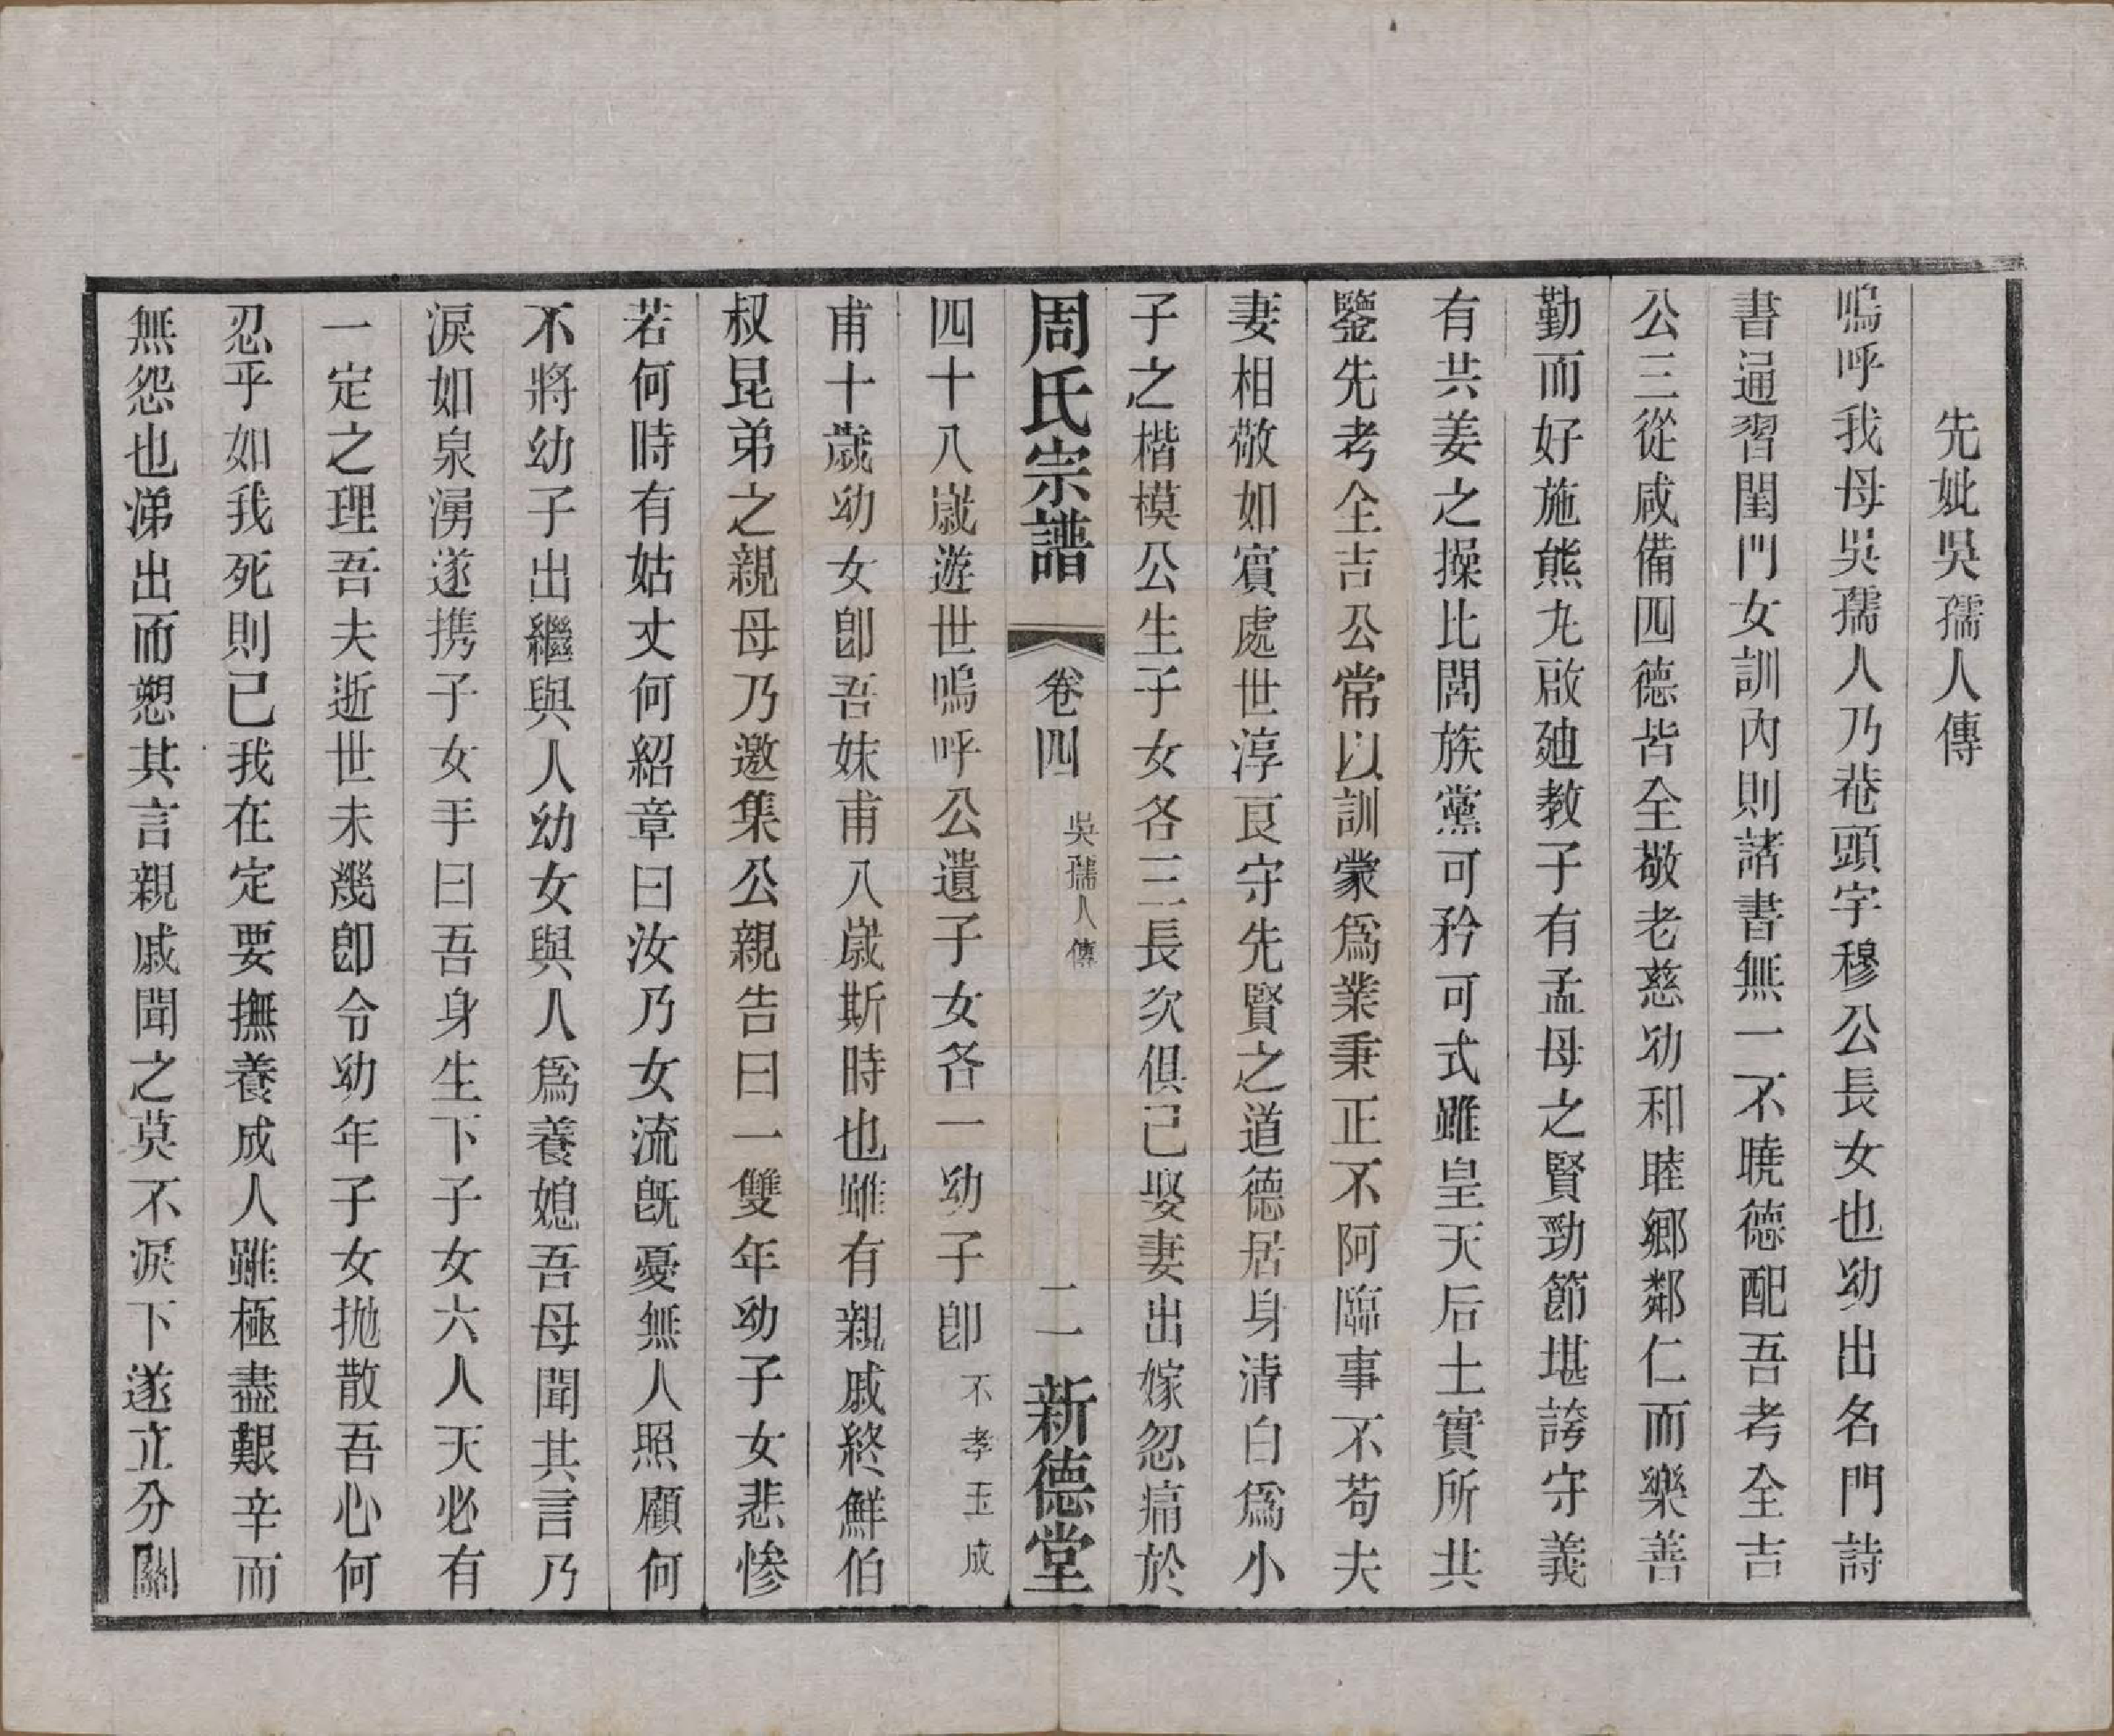 先妣吳孺人傳
嗚呼我母吳孺人乃巷頭宇穆公長女也幼出名門詩
書通習閨門女訓內則諸書無一不曉德配吾考全吉
公三從咸備四德皆全敬老慈幼和睦鄉鄰仁而樂善
勤而好施熊九啟廸教子有孟母之賢勁節堪誇守義
有共姜之操比閭族黨可矜可式雖皇天后土實所共
鑒先考全吉公常以訓蒙爲業秉正不阿臨事不苟夫
妻相敬如賓處世淳良守先賢之道德居身清白爲小
子之楷模公生子女各三長次俱已娶妻出嫁忽痛於
周氏宗譜 卷四 吳孺人傳 二 新德堂
四十八歲遊世嗚呼公遺子女各一幼子卽不孝玉成
甫十歲幼女卽吾妹甫八歲斯時也雖有親戚終鮮伯
叔昆弟之親母乃邀集公親告曰一雙年幼子女悲慘
若何時有姑丈何紹章曰汝乃女流旣憂無人照顧何
不將幼子出繼與人幼女與人爲養媳吾母聞其言乃
淚如泉湧遂携子女手曰吾身生下子女六人天必有
一定之理吾夫逝世未幾卽令幼年子女抛散吾心何
忍乎如我死則已我在定要撫養成人雖極盡艱辛而
無怨也涕出而愬其言親戚聞之莫不淚下遂立分關